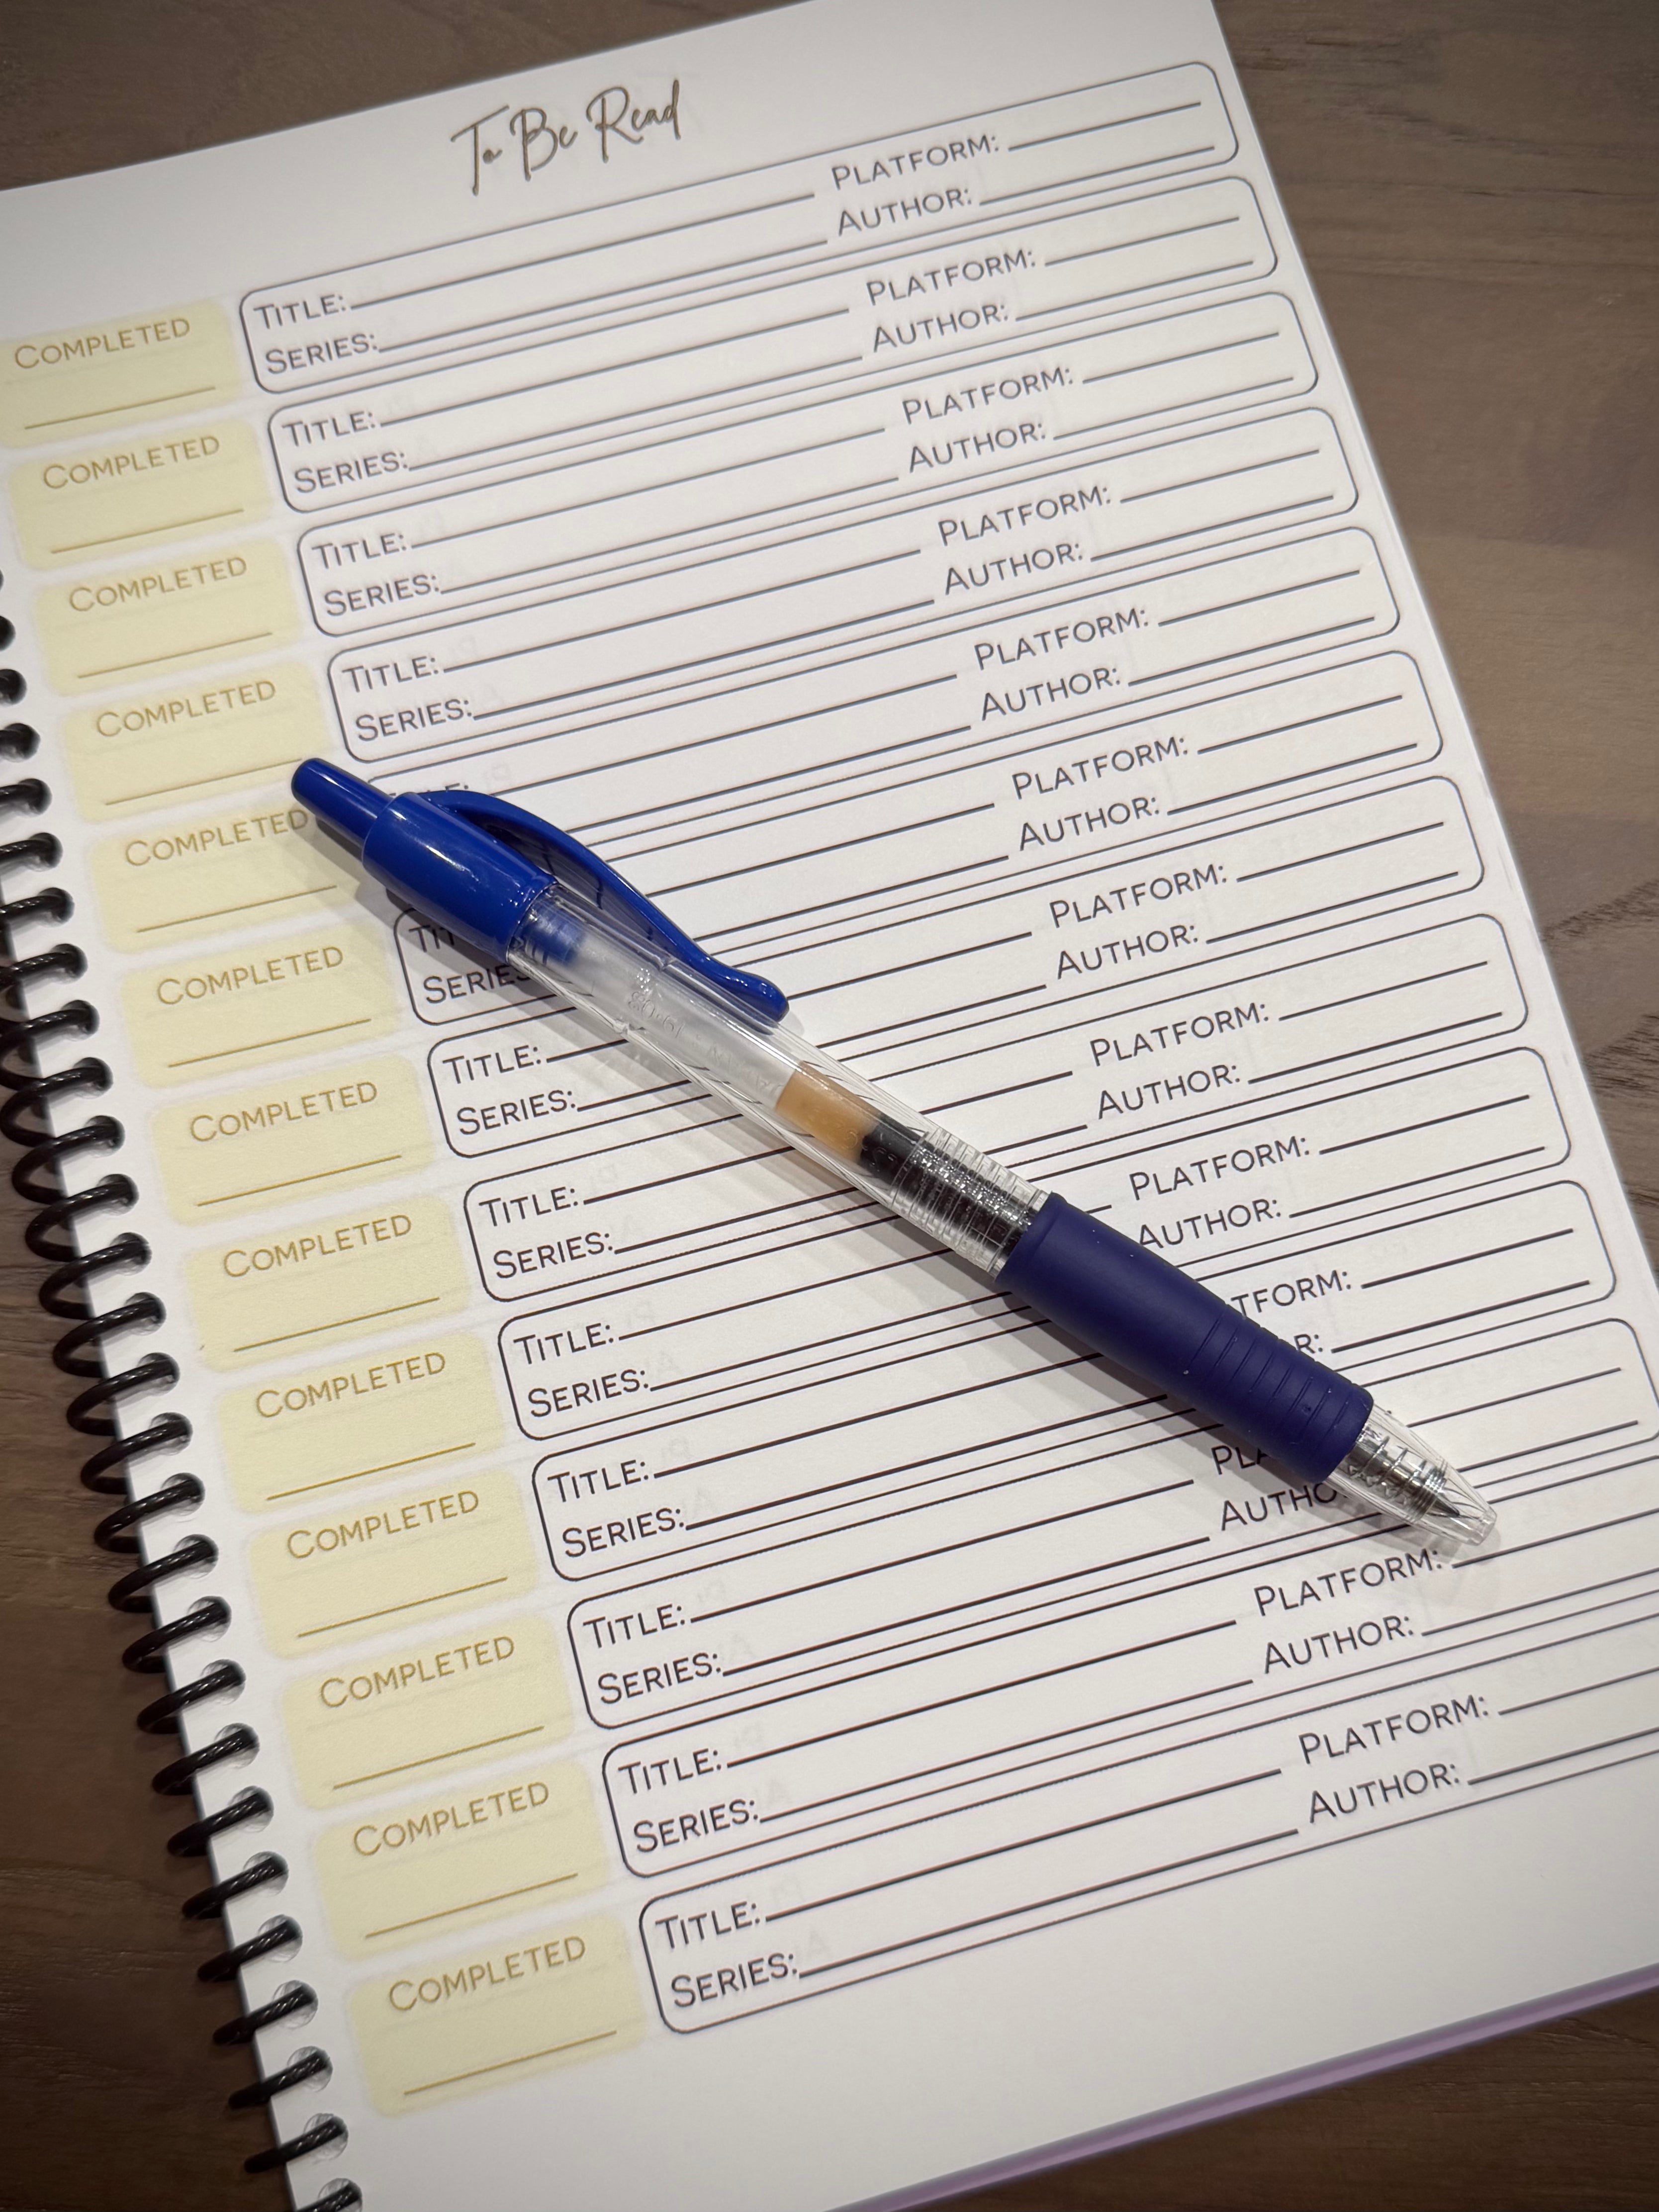 To Be Read
COMPLETED
TITLE: PLATFORM:
SERIES: AUTHOR:
COMPLETED
TITLE: PLATFORM:
SERIES: AUTHOR:
COMPLETED
TITLE: PLATFORM:
SERIES: AUTHOR:
COMPLETED
TITLE: PLATFORM:
SERIES: AUTHOR:
COMPLETED
PLATFORM:
AUTHOR:
COMPLETED
PLATFORM:
SERIES AUTHOR:
COMPLETED
TITLE: PLATFORM:
SERIES: AUTHOR:
COMPLETED
TITLE: PLATFORM:
SERIES: AUTHOR:
COMPLETED
TITLE: PLATFORM:
SERIES: AUTHOR:
COMPLETED
TITLE: TFORM:
SERIES: R:
COMPLETED
TITLE: PLA
SERIES: AUTHO
COMPLETED
TITLE: PLATFORM:
SERIES: AUTHOR:
COMPLETED
TITLE: PLATFORM:
SERIES: AUTHOR: